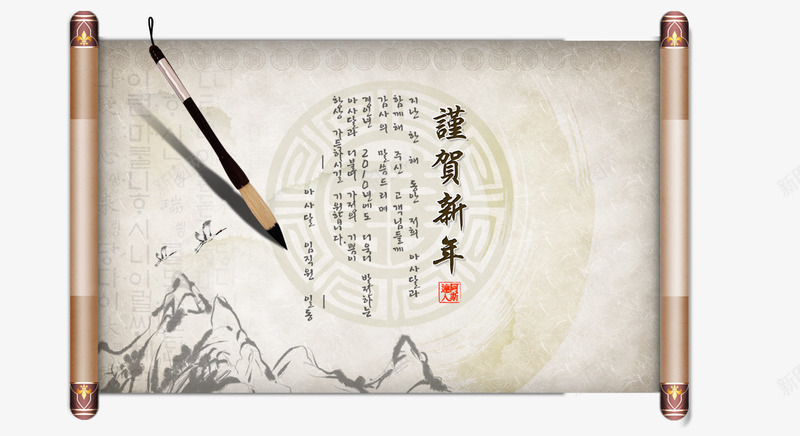 謹賀新年
阿斯
達人
지난 한해 동안 저희 아사달과
함께해 주신 고객님들께
감사의 말씀드리며
2010년에도 더욱더 발전하는
아사달과 더불어 가정의 기쁨이
항상 가득하시길 기원합니다.
아사달 임직원 일동